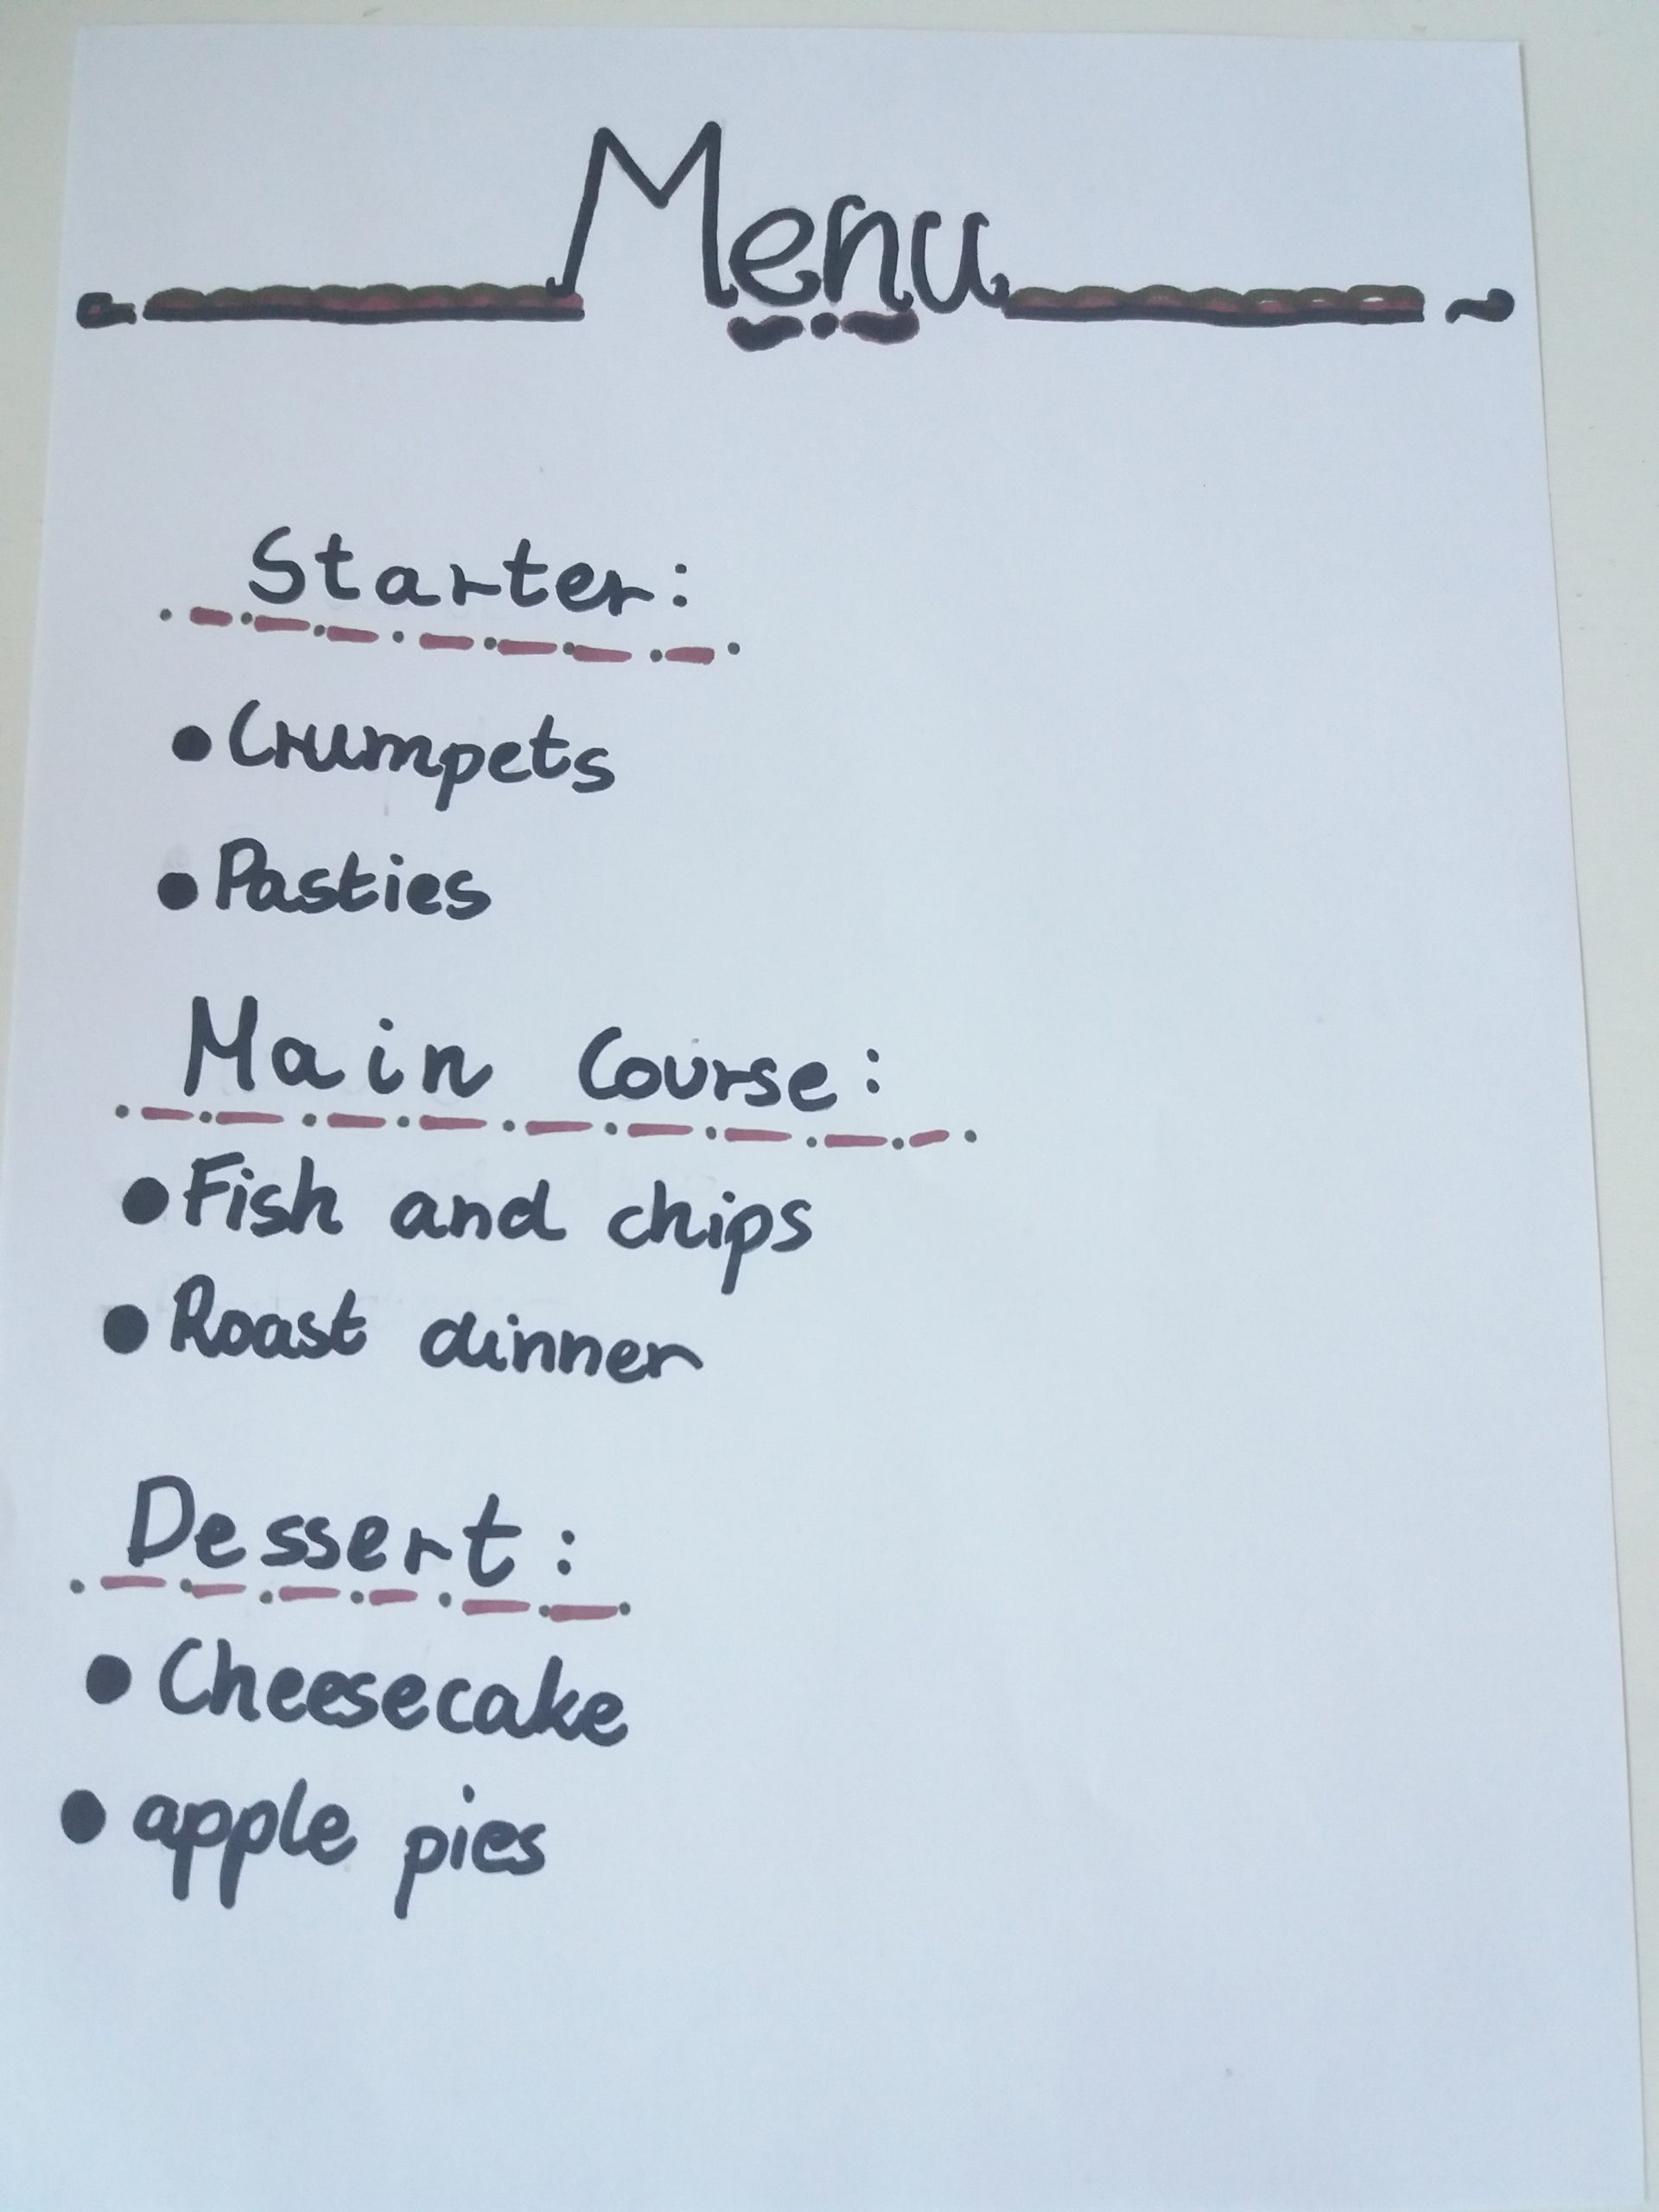 Menu
Starter:
• Crumpets
• Pasties
Main Course:
• Fish and chips
• Roast dinner
Dessert:
• Cheesecake
• apple pies